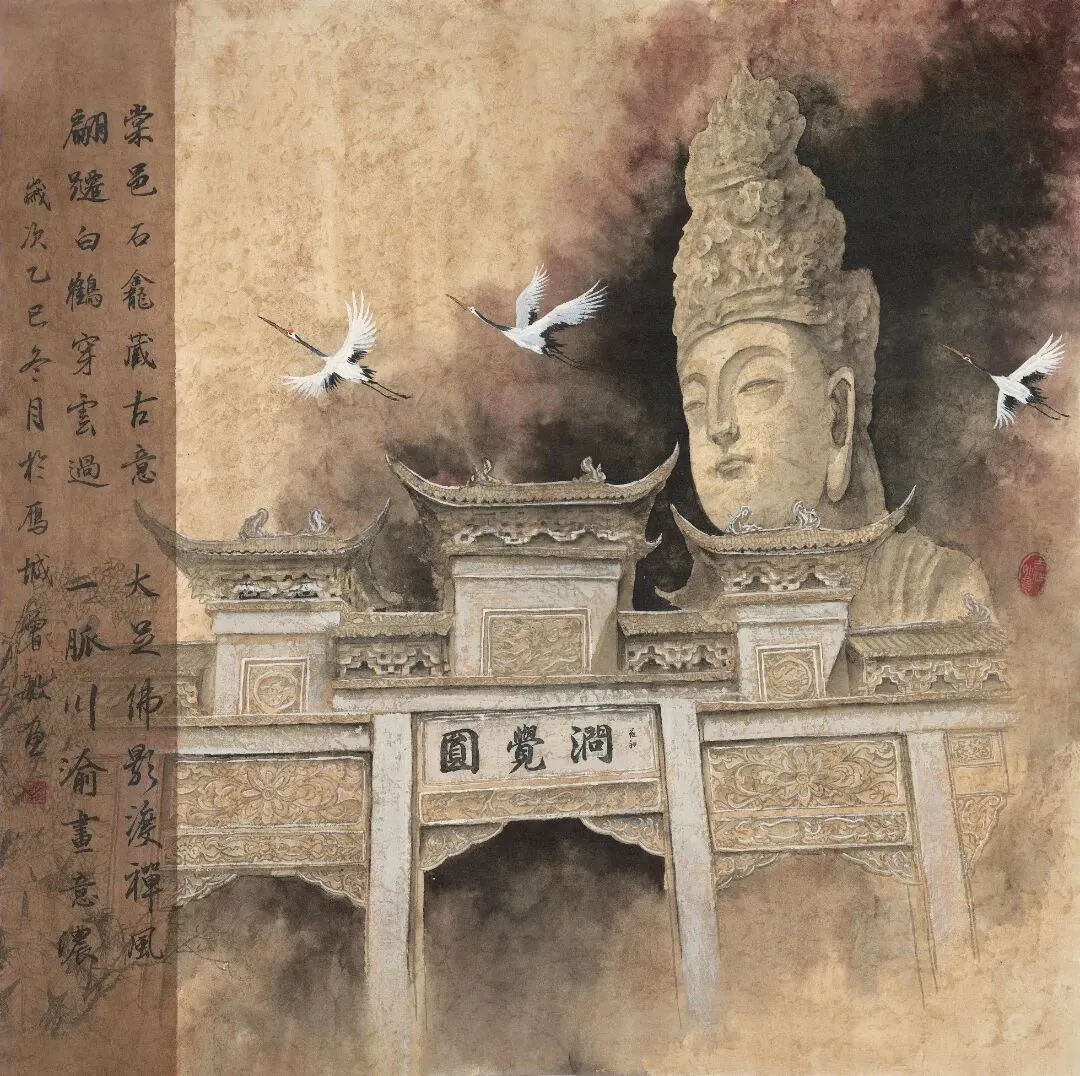 棠邑石龕藏古意 大足佛影渡禪風
翩躚白鶴穿雲過 一脈川渝畫意濃
歲次乙巳冬月於雁城曾敏画
圓覺洞